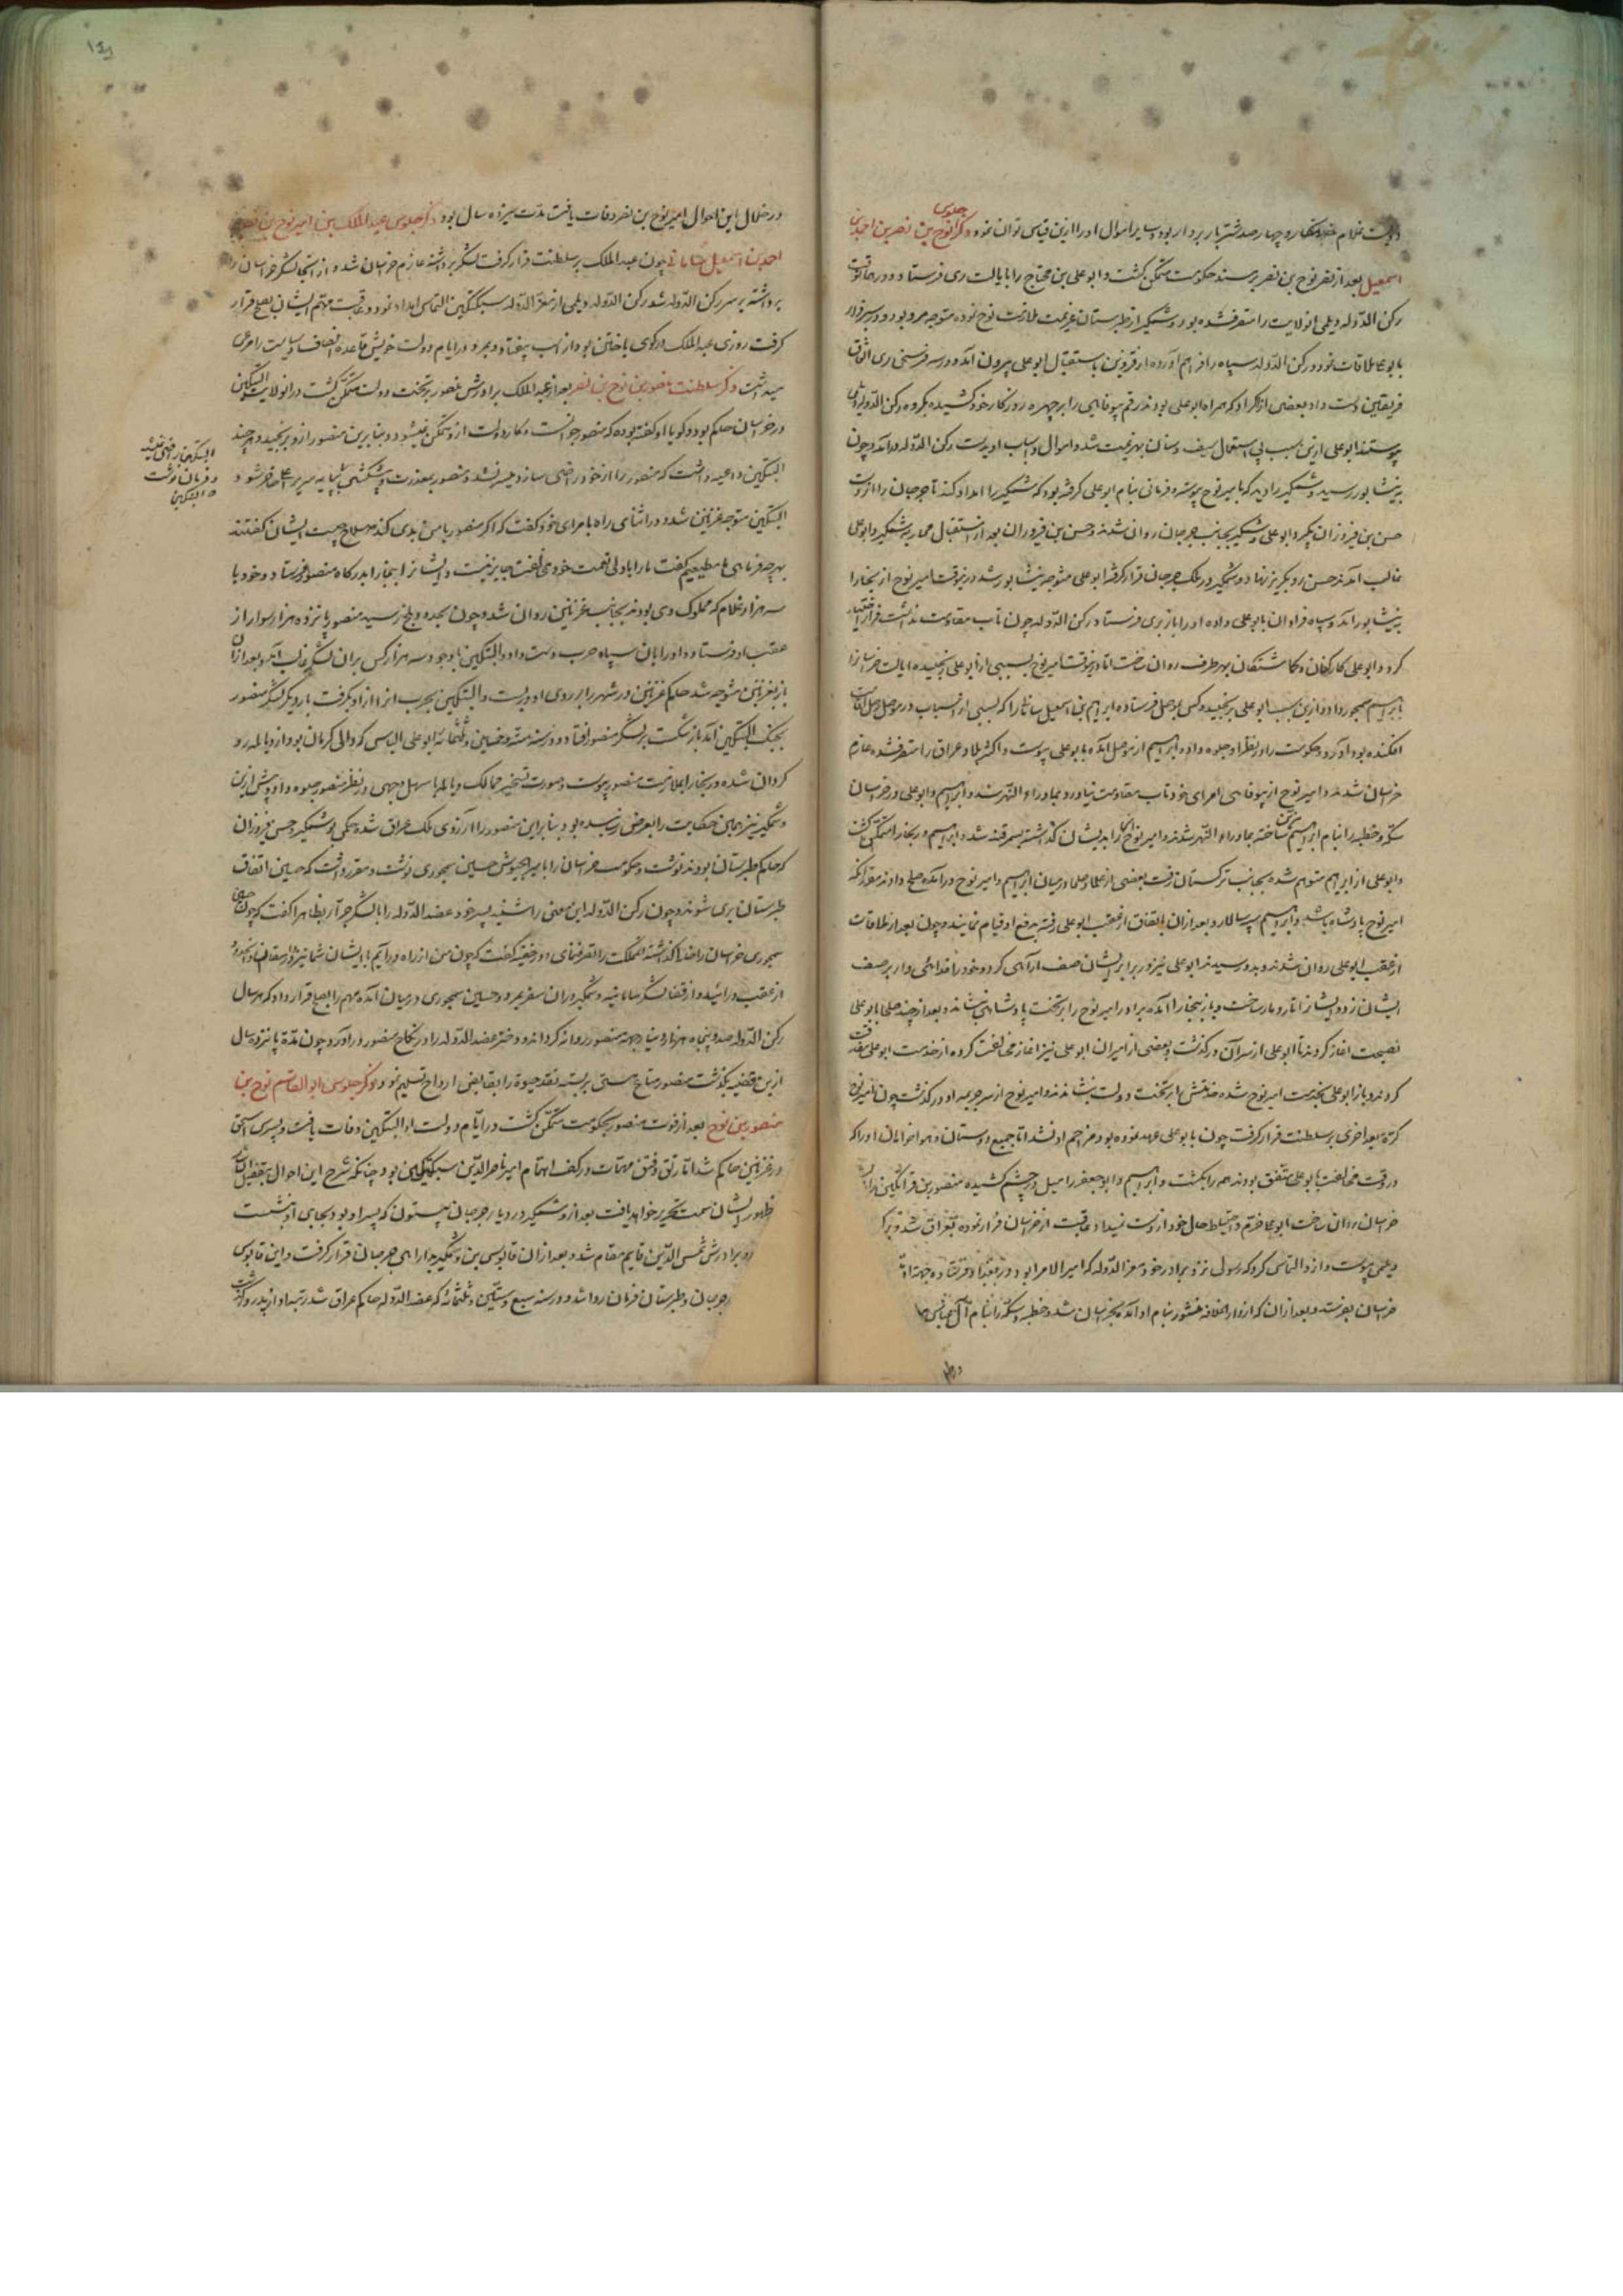 دویست غلام خدمتکار و چهار صد شتر بار بردار بود و سایر اموال او را ازین قیاس توان نمود ذکر جلوس نوح بن نصر بن احمد بن
اسمعیل بعد از نصر نوح بن نصر بر مسند حکومت متمکن گشت و ابو علی بن محتاج را بایالت ری فرستاد و در آن وقت
رکن الدوله دیلمی آن ولایت را متصرف شده بود و وشمگیر از طبرستان عزیمت ملازمت نوح نموده متوجه مرو بود و در
با بو علی ملاقات نمود و رکن الدوله سپاه را فراهم آورده از قزوین باستقبال ابو علی بیرون آمد و در سه فرسخی ری اتفاق
فریقین دست داد و بعضی از اکراد که همراه ابو علی بودند رقم بیوفایی را بر چهره روزگار خود کشیده بگروه رکن الدوله
پیوستند ابو علی ازین سبب بی استعمال سیف و سنان بهزیمت شد و اموال و اسباب او بدست رکن الدوله درآمد و چون
به نیشابور رسید وشمگیر را دید که بامیر نوح پیوسته و فرمانی بنام ابو علی گرفته بود که وشمگیر را امداد کند تا جرجان را از دست
حسن بن فیروزان بگیرد ابو علی و وشمگیر بجانب جرجان روان شدند و حسن بن فیروزان بعد از استقبال محاربه وشمگیر و ابو علی
غالب آمدند حسن رو بگریز نهاد و وشمگیر در ملک جرجان قرار گرفته ابو علی متوجه نیشابور شد درینوقت امیر نوح از بخارا
به نیشابور آمد و سپاه فراوان بابو علی داده او را باز بری فرستاد رکن الدوله چون تاب مقاومت نداشت فرار اختیار
کرد و ابو علی کارکنان و گماشتگان بهر طرف روان ساخت اما درینوقت امیر نوح بسببی از ابو علی رنجیده ایالت خراسانرا
بابراهیم سیمجور داد و ازین سبب ابو علی برنجید و کس بموصل فرستاده ابراهیم بن اسمعیل سامانی را که بسببی از اسباب در موصل رحل اقامت
افکنده بود آورد و حکومت را در نظر او جلوه داده ابراهیم از موصل آمده بابو علی پیوست و اکثر بلاد عراق را متصرف شده عازم
خراسان شدند و امیر نوح از بیوفایی امرای خود تاب مقاومت نیاورده بماوراء النهر شد و ابراهیم و ابو علی در خراسان
سکه و خطبه را بنام ابراهیم مزین ساخته بماوراء النهر شدند و امیر نوح بخارا بدیشان گذاشته بسمرقند شد و ابراهیم در بخارا متمکن گشت
و ابو علی از ابراهیم متوهم شده بجانب ترکستان رفت بعضی از علما و صلحا در میان ابراهیم و امیر نوح درآمده صلح دادند مقرر آنکه
امیر نوح پادشاه باشد و ابراهیم سپهسالار و بعد از آن باتفاق از عقب ابو علی رفته بدفع او قیام نمایند و چون بعد از ملاقات
از عقب ابو علی روان شدند و بدو رسیدند ابو علی نیز در برابر ایشان صف آرایی کرد و خود را فدائی وار بر صف
ایشان زد و ایشانرا تار و مار ساخت و باز ببخارا آمده برادر امیر نوح را بر تخت پادشاهی نشاند و بعد از چند صلحا بابو علی
نصیحت آغاز کردند تا ابو علی از سر آن درگذشت و بعضی از امیران ابو علی نیز آغاز مخالفت کرده از خدمت ابو علی مفارقت
کردند و باز ابو علی بخدمت امیر نوح شده خدمتش بر تخت دولت بنشاندند و امیر نوح از سر جریمه او درگذشت چون امیر نوح
کرة بعد اخری بر سلطنت قرار گرفت چون با بو علی عهد نموده بود مزاحم او نشد اما جمیع دوستان و هواخواهان او را که
در وقت مخالفت بابو علی متفق بودند همه را بکشت و ابراهیم و ابو جعفر را میل در چشم کشیده منصور بن قراتکین را
خراسان روان ساخت ابو علی حزم و احتیاط حال خود از دست نمیداد عاقبت از خراسان فرار نموده بعراق شد و برکن
دیلمی پیوست و ازو التماس کرد که رسولی نزد برادر خود معز الدوله که امیر الامرا بود در بغداد فرستاده جهت او
خراسان بفرستد و بعد از آن که از دار الخلافه منشور بنام او آمد بخراسان شد و خطبه و سکه را بنام آل عباس
در خلال
در خلال این احوال امیر نوح بن نصر وفات یافت مدت سیزده سال بود ذکر جلوس عبد الملک بن امیر نوح بن نصر بن
احمد بن اسمعیل سامانی چون عبد الملک بر سلطنت قرار گرفت لشکر برداشته عازم خراسان شد و از آنجا لشکر خراسان را
برداشته بر سر رکن الدوله شد رکن الدوله دیلمی از معز الدوله سبکتکین التماس امداد نمود و عاقبت مهم ایشان بصلح قرار
گرفت روزی عبد الملک در گوی باختن بود از اسب بیفتاد و بمرد و در ایام دولت خویش قاعده انصاف و سیاست را مرعی
میداشت ذکر سلطنت منصور بن نوح بن نصر بعد از عبد الملک برادرش منصور بر تخت دولت متمکن گشت در آن ولایت البتکین
در خراسان حاکم بود و گویا او گفته بوده که منصور جوانست و کار دولت ازو متمکن نمیشود بنابرین منصور ازو برنجید و هر چند
البتکین داعیه داشت که منصور را از خود راضی سازد میسر نشد و منصور بمعذرت و پیشکشی بپایه سریر اعلی حاضر شود
البتکین متوجه غزنین شد و در اثنای راه با مرای خود گفت که اگر منصور با من بدی کند صلاح چیست ایشان گفتند
بهر چه فرمایی ما مطیعیم گفت ما را با ولی نعمت خود مخالفت جایز نیست و ایشانرا ببخارا بدرگاه منصور فرستاد و خود با
سه هزار غلام که مملوک وی بودند بجانب غزنین روان شد و چون بحدود بلخ رسید منصور پانزده هزار سوار از
عقب او فرستاد و او را بآن سپاه حرب دست داد و البتکین باوجود سه هزار کس بر آن لشکر غالب آمد و بعد از آن
باز بغزنین متوجه شد حاکم غزنین در شهر را بر روی او در بست و البتکین بحرب آنرا از او بگرفت بار دیگر لشکر منصور
بجنگ البتکین آمد باز شکست بر لشکر منصور افتاد و در سنه سته و خمسین و ثلثمائه ابو علی الیاس که والی کرمان بود از دیالمه رو
گردان شده در بخارا بملازمت منصور پیوست و صورت تسخیر ممالک دیالمه باسهل وجهی در نظر منصور جلوه داد و پیش ازین
وشمگیر نیز همین حکایت را بعرض رسانیده بود و بنابراین منصور را آرزوی ملک عراق شده حکمی بوشمگیر و حسن فیروزان
که حاکم طبرستان بودند نوشت و حکومت خراسان را بامیر الجیوش حسین سیمجوری نوشت و مقرر داشت که حسین اتفاق
طبرستان بری شوند و چون رکن الدوله این معنی را شنید پسر خود عضد الدوله را با لشکر جرار بظاهر گفت که چون حسین
سیمجوری خراسان را خالی گذاشته آن مملکت را متصرف نمای و در خفیه گفت که چون من از راه درآیم با ایشان شما نیز
از عقب درآئید و از قضا لشکر سامانیه وشمگیر در آن سفر بمرد و حسین سیمجوری در میان آمده مهم را بصلح قرار داد که هر سال
رکن الدوله صد و پنجاه هزار دینار بجهة منصور روانه گرداند و دختر عضد الدوله را در نکاح منصور درآورد و چون مدة پانزده سال
ازین قضیه بگذشت منصور متاع هستی بر بسته نقد حیوة را بقابض ارواح تسلیم نمود ذکر جلوس ابو القاسم نوح بن
منصور بن نوح بعد از فوت منصور بحکومت متمکن گشت در ایام دولت او البتکین وفات یافت و پسرش اسحق
در غزنین حاکم شد اما رتق و فتق مهمات در کف اهتمام امیر ناصر الدین سبکتکین بود چنانکه شرح این احوال بتفصیل
ظهور ایشان سمت تحریر خواهد یافت بعد از وشمگیر در دیار جرجان بیستون که پسر او بود بجای او بنشست
و برادرش شمس الدین قایم مقام شد و بعد از آن قابوس بن وشمگیر بدارایی جرجان قرار گرفت و این قابوس
جرجان و طبرستان فرمان روا شد و در سنه سبع و ستین و ثلثمائه که عضد الدوله حاکم عراق شد
البتکین
و فرمان نوشت